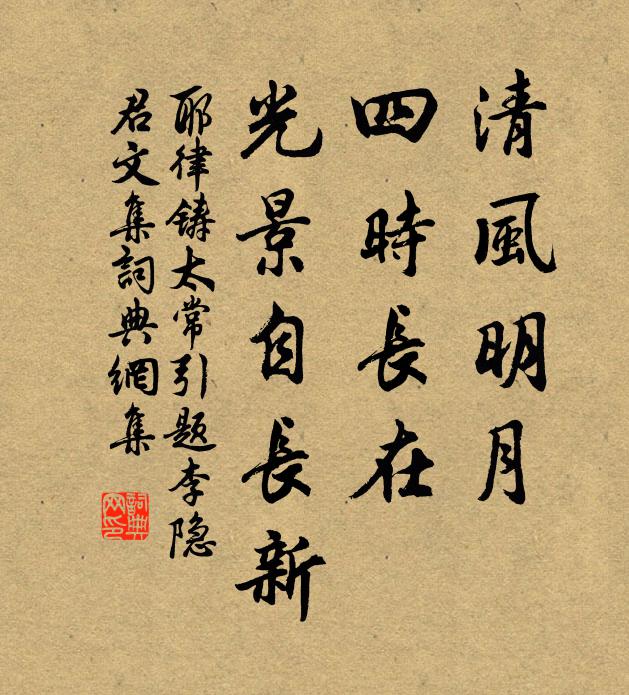 清風明月
四時長在
光景自長新
耶律鑄太常引題李隐
君文集詞典網集
詞典网印